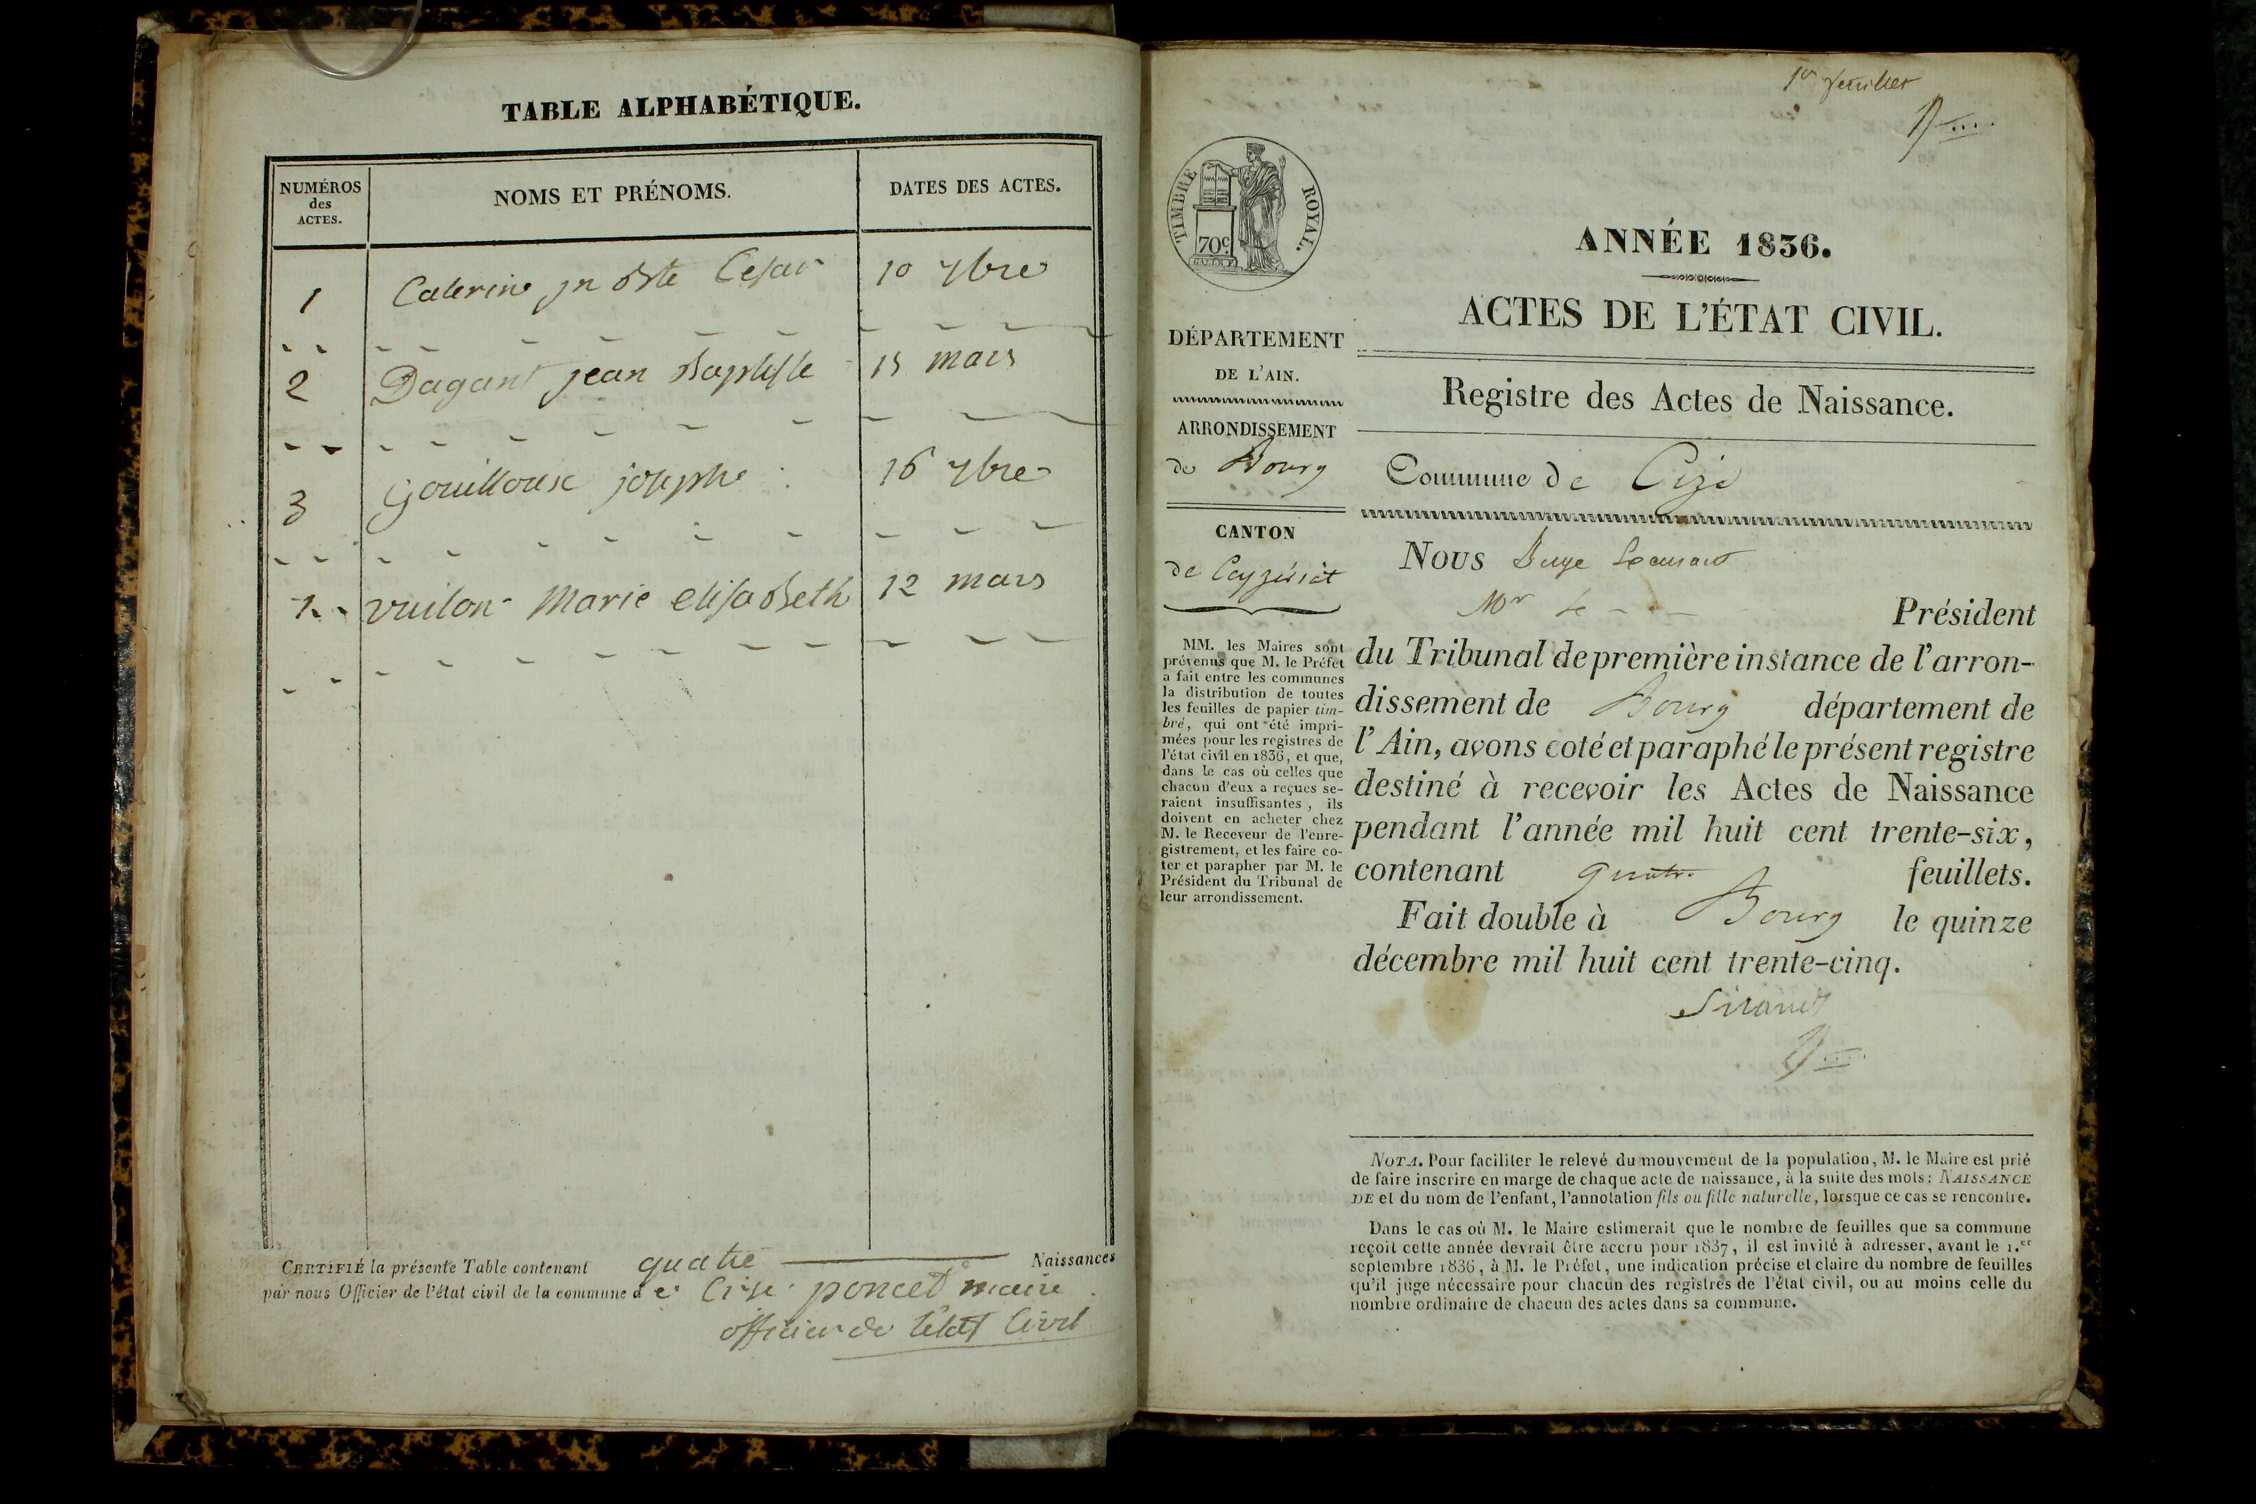 TABLE ALPHABÉTIQUE.
NUMÉROS des ACTES.
NOMS ET PRÉNOMS.
DATES DES ACTES.
1 Caterin jn Bte Cesar 10 7bre
2 Dagant jean Baptiste 15 mars
3 Gouilloux josephe 16 7bre
vuiton Marie elisabeth 12 mars
CERTIFIÉ la présente Table contenant quatre Naissances
par nous Officier de l'état civil de la commune de Cise poncet maire
officier de l'état Civil
1er feuillet
TIMBRE ROYAL.
70c
ANNÉE 1836.
ACTES DE L'ÉTAT CIVIL.
Registre des Actes de Naissance.
DÉPARTEMENT
DE L'AIN.
ARRONDISSEMENT
de Bourg
CANTON
de Ceyzériat
MM. les Maires sont
prévenus que M. le Préfet
a fait entre les communes
la distribution de toutes
les feuilles de papier tim-
bré, qui ont été impri-
mées pour les registres de
l'état civil en 1836, et que,
dans le cas où celles que
chacun d'eux a reçues se-
raient insuffisantes, ils
doivent en acheter chez
M. le Receveur de l'enre-
gistrement, et les faire co-
ter et parapher par M. le
Président du Tribunal de
leur arrondissement.
Commune de Cize
Nous Juge
Mr le Président
du Tribunal de première instance de l'arron-
dissement de Bourg département de
l'Ain, avons coté et paraphé le présent registre
destiné à recevoir les Actes de Naissance
pendant l'année mil huit cent trente-six,
contenant quatre feuillets.
Fait double à Bourg le quinze
décembre mil huit cent trente-cinq.
NOTA. Pour faciliter le relevé du mouvement de la population, M. le Maire est prié
de faire inscrire en marge de chaque acte de naissance, à la suite des mots: NAISSANCE
DE et du nom de l'enfant, l'annotation fils ou fille naturelle, lorsque ce cas se rencontre.
Dans le cas où M. le Maire estimerait que le nombre de feuilles que sa commune
reçoit cette année devrait être accru pour 1837, il est invité à adresser, avant le 1.er
septembre 1836, à M. le Préfet, une indication précise et claire du nombre de feuilles
qu'il juge nécessaire pour chacun des registres de l'état civil, ou au moins celle du
nombre ordinaire de chacun des actes dans sa commune.